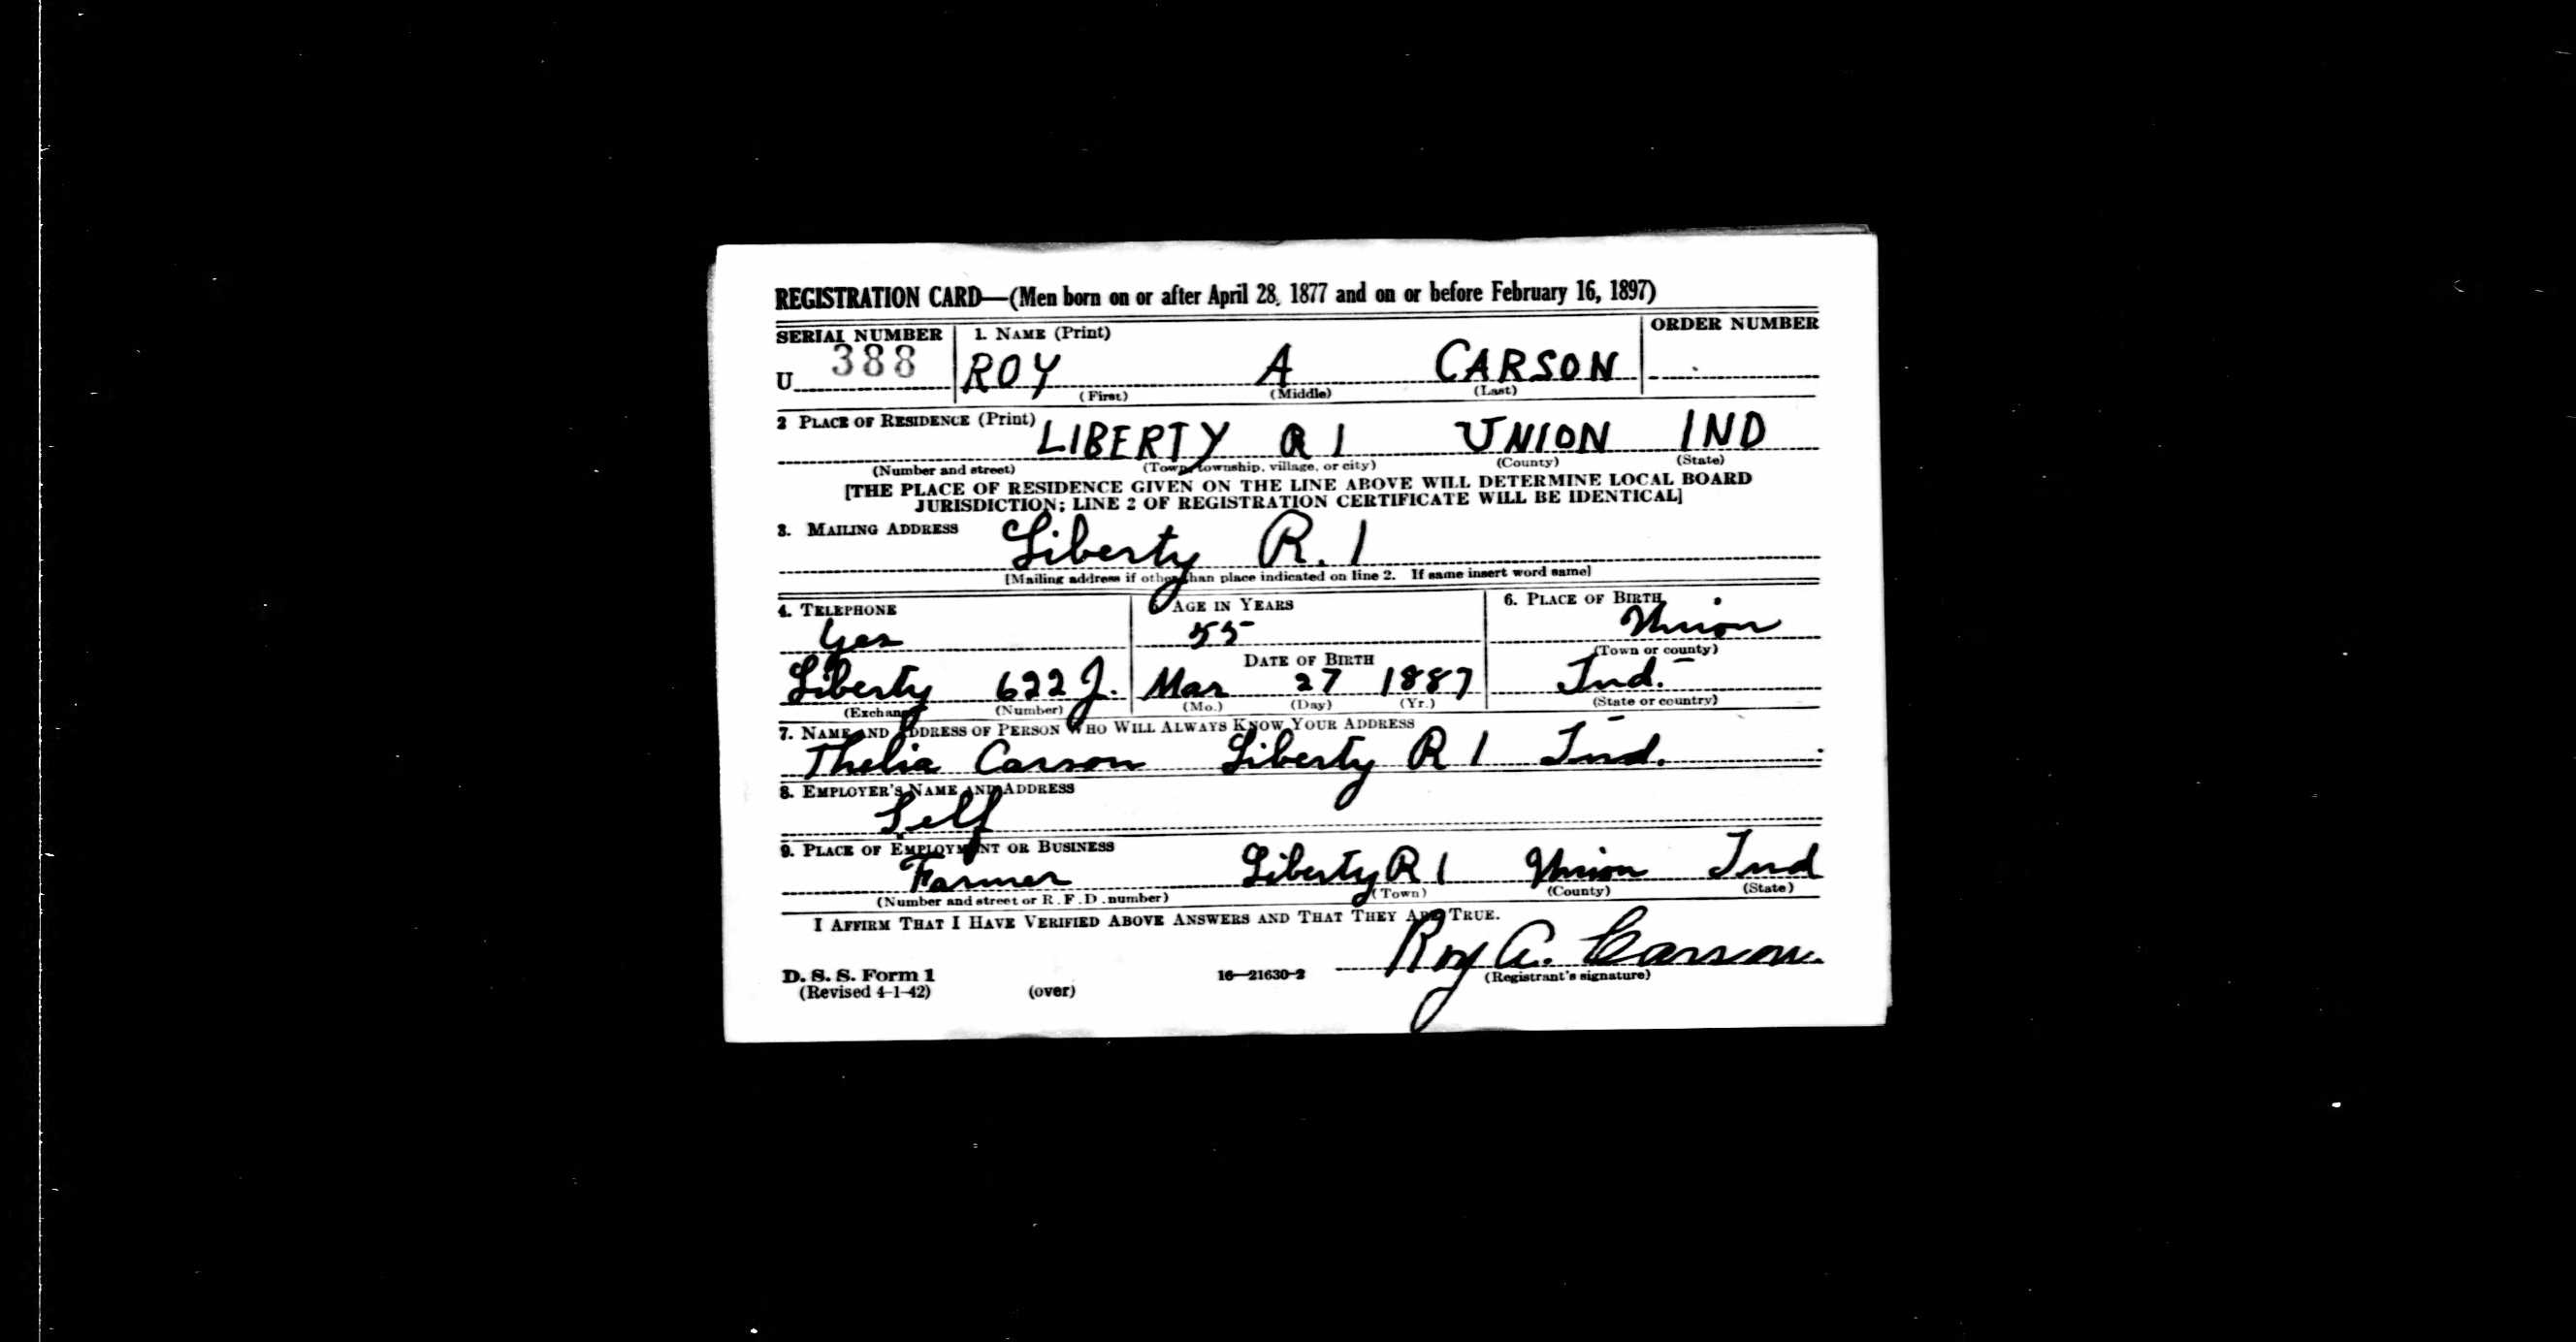 REGISTRATION CARD—(Men born on or after April 28, 1877 and on or before February 16, 1897)
SERIAL NUMBER 1. NAME (Print) ORDER NUMBER
U 388 ROY A CARSON
(First) (Middle) (Last)
2 PLACE OF RESIDENCE (Print) LIBERTY R 1 UNION IND
(Number and street) (Town, township, village, or city) (County) (State)
[THE PLACE OF RESIDENCE GIVEN ON THE LINE ABOVE WILL DETERMINE LOCAL BOARD
JURISDICTION; LINE 2 OF REGISTRATION CERTIFICATE WILL BE IDENTICAL]
3. MAILING ADDRESS Liberty R. 1
[Mailing address if other than place indicated on line 2. If same insert word same]
4. TELEPHONE AGE IN YEARS 6. PLACE OF BIRTH
Yes 55 Union
DATE OF BIRTH (Town or county)
Liberty 622 J. Mar 27 1887 Ind.
(Exchange) (Number) (Mo.) (Day) (Yr.) (State or country)
7. NAME AND ADDRESS OF PERSON WHO WILL ALWAYS KNOW YOUR ADDRESS
Thelia Carson Liberty R 1 Ind.
8. EMPLOYER'S NAME AND ADDRESS
Self
9. PLACE OF EMPLOYMENT OR BUSINESS
Farmer Liberty R 1 Union Ind
(Number and street or R.F.D. number) (Town) (County) (State)
I AFFIRM THAT I HAVE VERIFIED ABOVE ANSWERS AND THAT THEY ARE TRUE.
Roy A. Carson.
D. S. S. Form 1 16—21630-2 (Registrant's signature)
(Revised 4-1-42) (over)